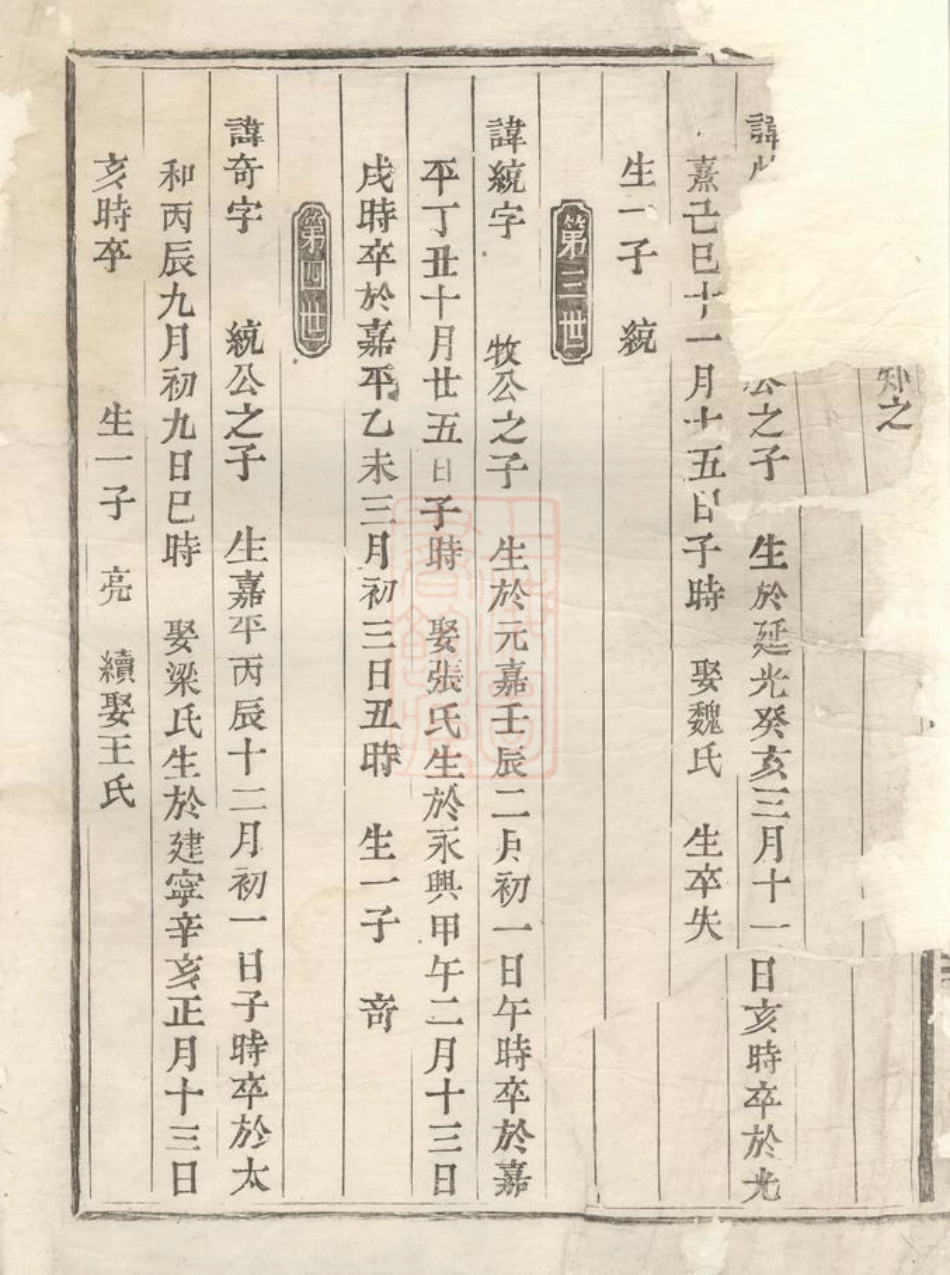 知之
諱 公之子 生於延光癸亥三月十一日亥時卒於光
熹己巳十一月十五日子時 娶魏氏 生卒失
生一子 統
第三世
諱統字 牧公之子 生於元嘉壬辰二月初一日午時卒於嘉
平丁丑十月廿五日子時 娶張氏生於永興甲午二月十三日
戌時卒於嘉平乙未三月初三日丑時 生一子 奇
第四世
諱奇字 統公之子 生嘉平丙辰十二月初一日子時卒於太
和丙辰九月初九日巳時 娶梁氏生於建寧辛亥正月十三日
亥時卒 生一子 亮 續娶王氏